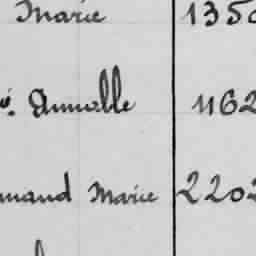 Marie 1350
é. Annette 1162
mand Marie 2202